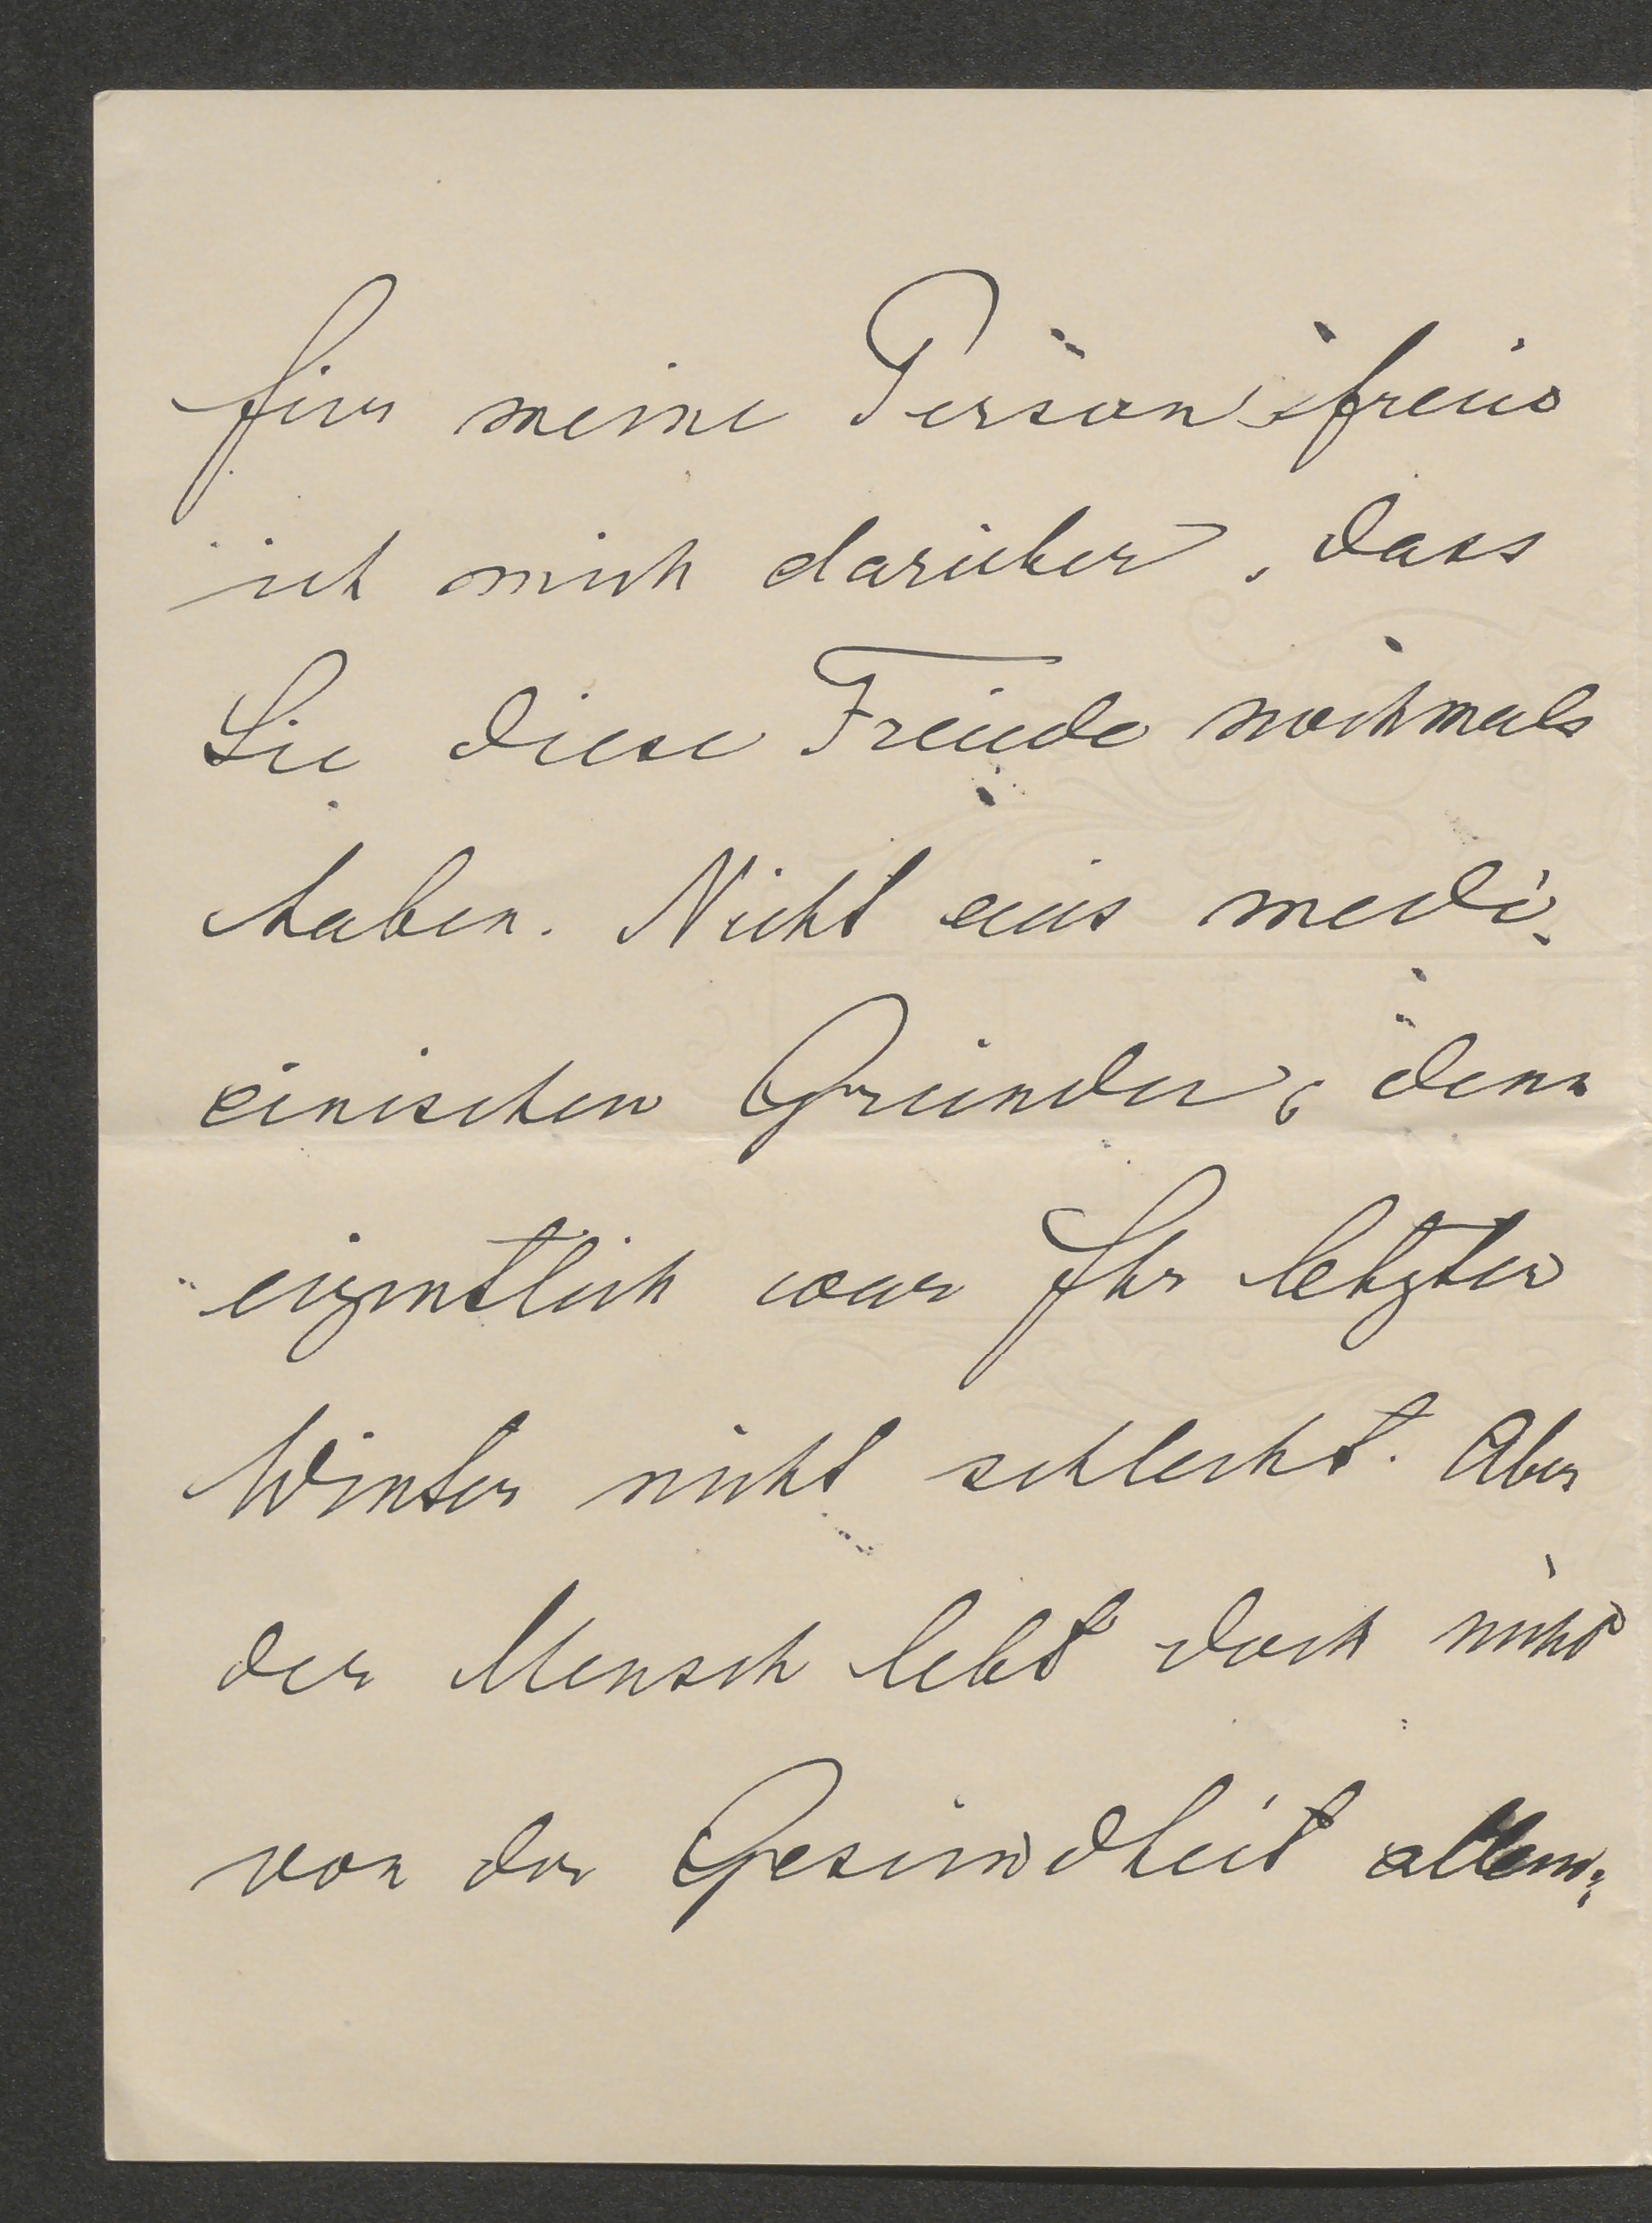 für meine Person freue
ich mich darüber, dass
Sie diese Freude nochmals
haben. Nicht aus medi-
cinischen Gründen, denn
eigentlich war Ihr letzter
Winter nicht schlecht. Aber
der Mensch lebt doch nicht
von der Gesundheit allein;